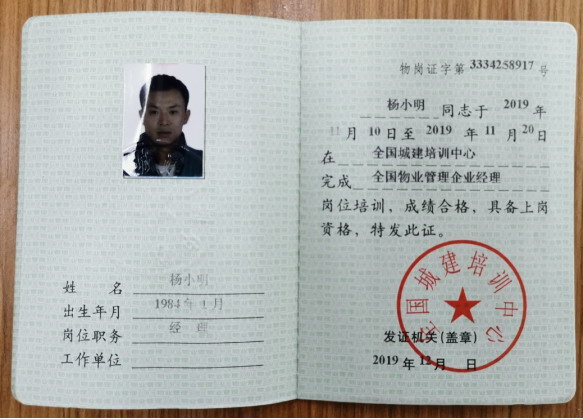 姓 名 杨小明
出生年月 1984年1月
岗位职务 经 理
工作单位
物岗证字第3334258917号
杨小明 同志于 2019 年
11月10日至 2019 年11月20日
在 全国城建培训中心
完成 全国物业管理企业经理
岗位培训，成绩合格，具备上岗
资格，特发此证。
全国城建培训中心
发证机关(盖章)
2019 年 12月 日